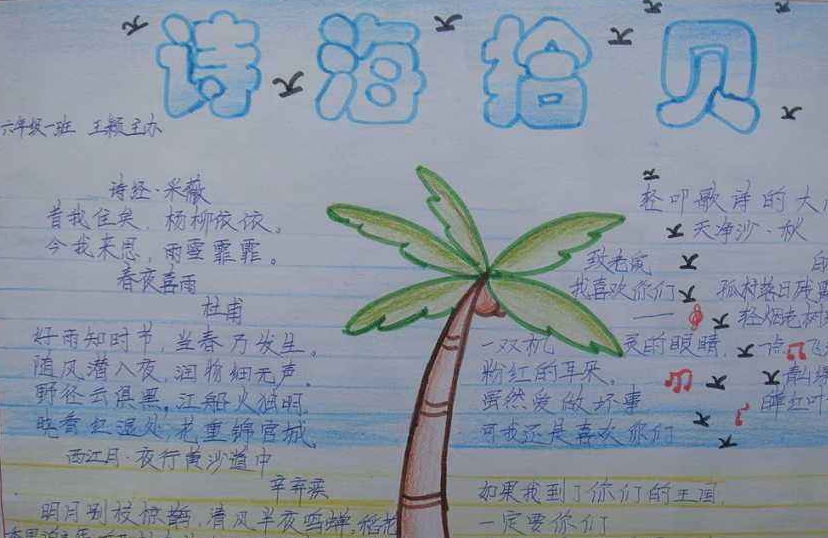 诗海拾贝
六年级一班 王颖主办
诗经·采薇
昔我往矣,杨柳依依。
今我来思,雨雪霏霏。
春夜喜雨
杜甫
好雨知时节,当春乃发生。
随风潜入夜,润物细无声。
野径云俱黑,江船火独明。
晓看红湿处,花重锦官城
西江月·夜行黄沙道中
辛弃疾
明月别枝惊鹊,清风半夜鸣蝉,稻花
轻叩歌诗的大
天净沙·秋
孤村落日残
轻烟老树
一点飞
青山绿
红叶
致老鼠
我喜欢你们
——
一双机灵的眼睛
粉红的耳朵。
虽然爱做坏事
可我还是喜欢你们
如果我到了你们的王国,
一定要你们